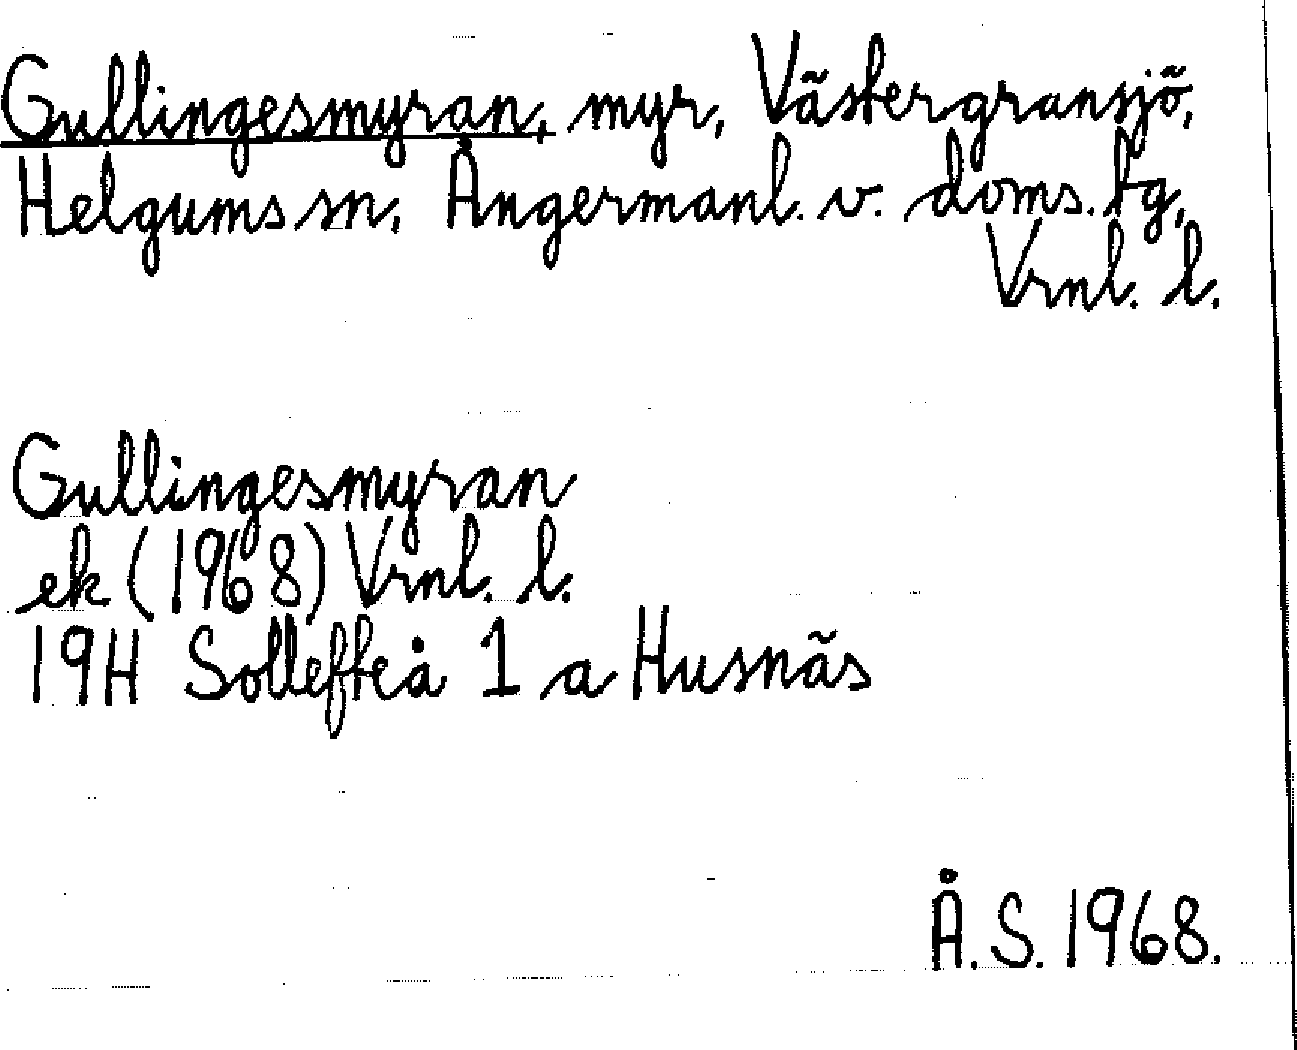 Gullingesmyran, myr, Västergransjö,
Helgums sn, Ångermanl. v. doms. tg,
Vrnl. l.
Gullingesmyran
ek (1968) Vrnl. l.
19H Sollefteå 1 a Husnäs
Å.S. 1968.